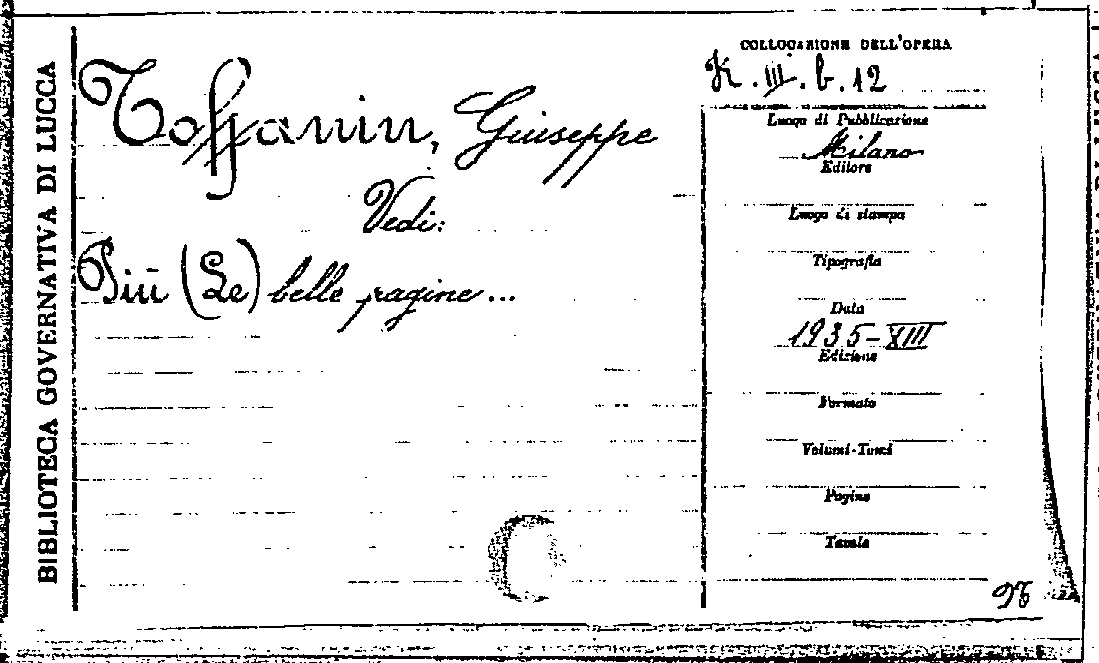 BIBLIOTECA GOVERNATIVA DI LUCCA
Toffanin, Giuseppe
Vedi:
Più (Le) belle pagine...
COLLOCAZIONE DELL'OPERA
K.III.b.12
Luogo di Pubblicazione
Milano
Editore
Luogo di stampa
Tipografia
Data
1935-XIII
Edizione
Formato
Volumi-Tomi
Pagine
Tavole